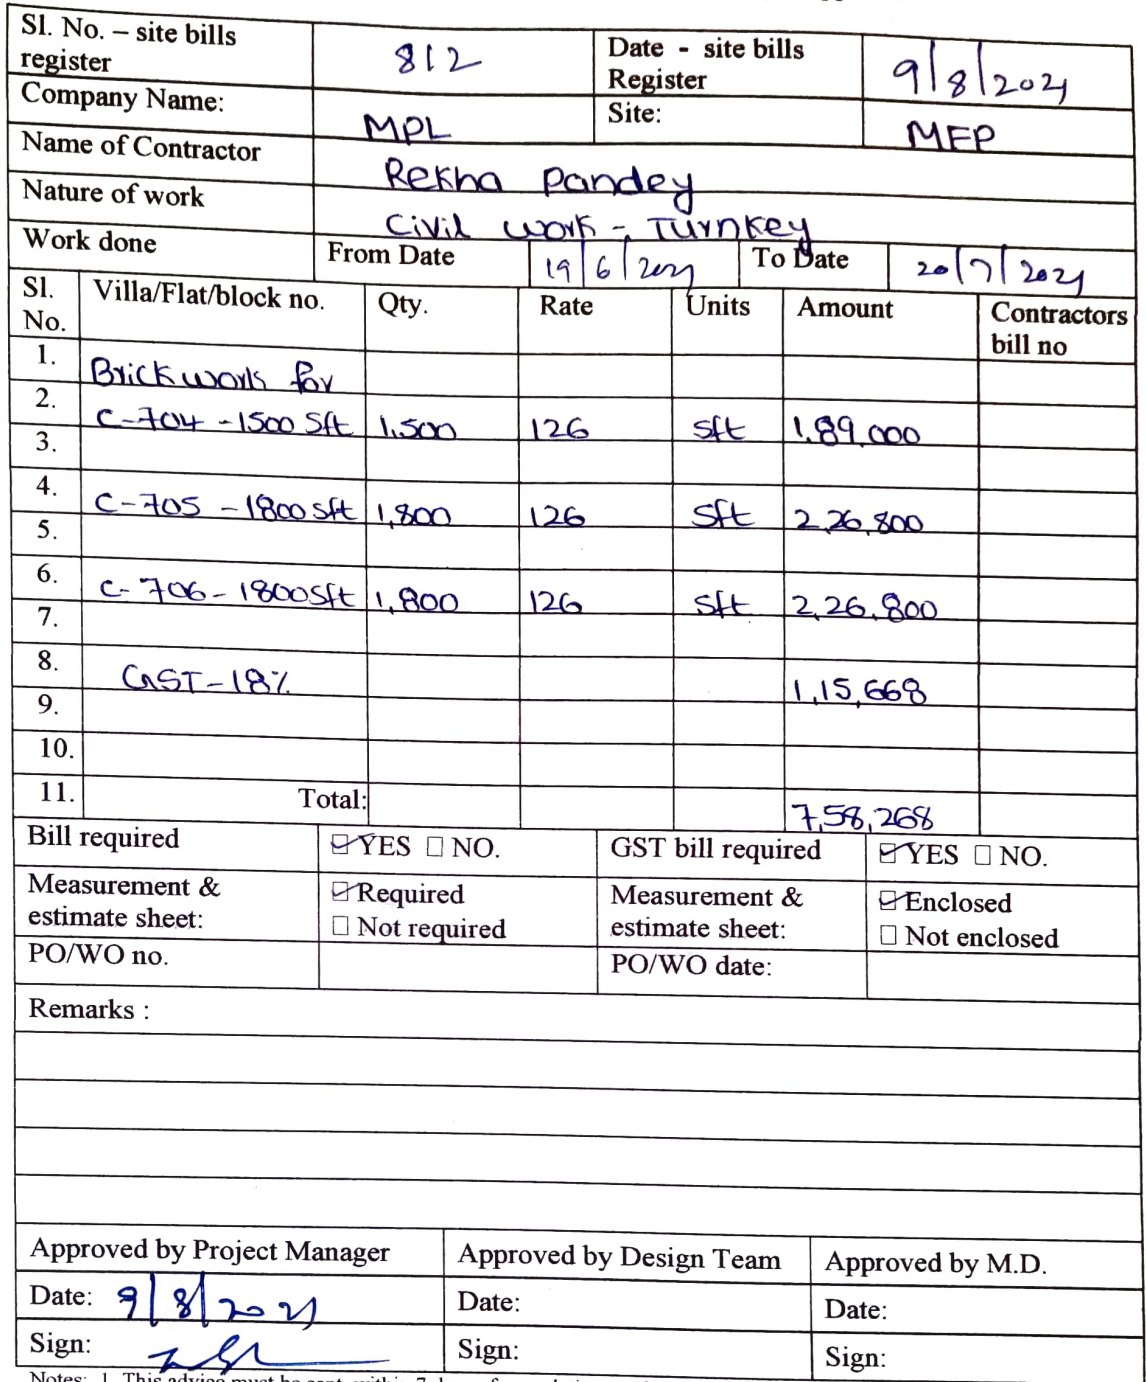 Sl. No. – site bills register 812 Date - site bills Register 9/8/2021
Company Name: MPL Site: MFP
Name of Contractor Rekha Pandey
Nature of work Civil work - Turnkey
Work done From Date 19/6/2021 To Date 20/7/2021
Sl. No. Villa/Flat/block no. Qty. Rate Units Amount Contractors bill no
1. Brick work for
2. C-704 - 1500 Sft 1,500 126 sft 1,89,000
3.
4. C-705 - 1800 sft 1,800 126 sft 2,26,800
5.
6. C-706 - 1800 Sft 1,800 126 sft 2,26,800
7.
8. GST - 18% 1,15,668
9.
10.
11. Total: 7,58,268
Bill required ☑ YES ☐ NO. GST bill required ☑ YES ☐ NO.
Measurement & estimate sheet: ☑ Required ☐ Not required Measurement & estimate sheet: ☑ Enclosed ☐ Not enclosed
PO/WO no. PO/WO date:
Remarks :
Approved by Project Manager Approved by Design Team Approved by M.D.
Date: 9/8/2021 Date: Date:
Sign: Sign: Sign:
Notes: 1. This advice must be sent within 7 days